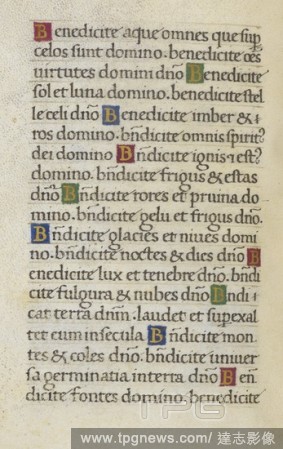 Benedicite aque omnes que sup
celos sunt domino. benedicite oēs
virtutes domini dño Benedicite
sol et luna domino. benedicite stel
le celi dño Benedicite imber & r
ros domino. bñdicite omnis spirit?
dei domino Bñdicite ignis & est?
domino. bñdicite frigus & estas
dño Bñdicite rores et pruina do
mino. bñdicite gelu et frigus dño.
Bñdicite glacies et niues domi
no. bñdicite noctes & dies dño B
enedicite lux et tenebre dño. bñdi
cite fulgura & nubes dño Bñdi
cat terra dñm. laudet et supexal
tet eum in secula Bñdicite mon
tes & coles dño. bñdicite uniuer
sa germinatia in terra dño Ben
dicite fontes domino. benedicite
TPG
www.tpgnews.com / 達志影像